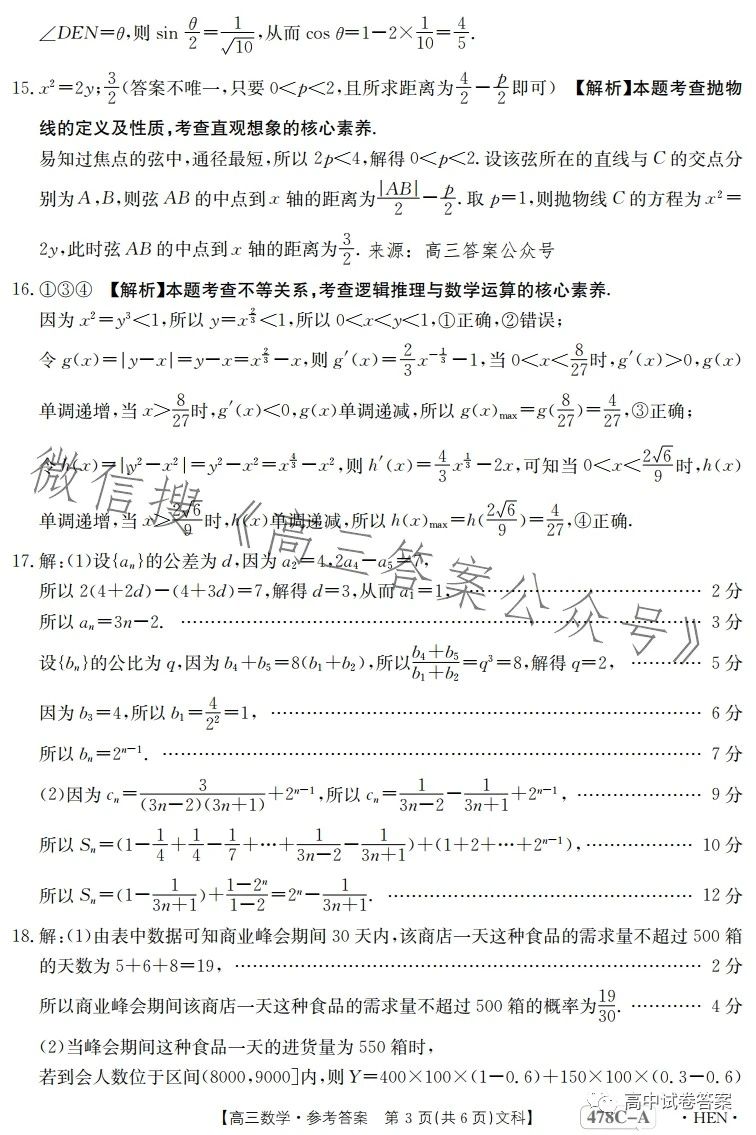 ∠DEN=θ,则 sin θ/2=1/√10,从而 cos θ=1-2×1/10=4/5.
15. x²=2y;3/2(答案不唯一,只要 0<p<2,且所求距离为4/2-p/2即可) 【解析】本题考查抛物
线的定义及性质,考查直观想象的核心素养.
易知过焦点的弦中,通径最短,所以 2p<4,解得 0<p<2. 设该弦所在的直线与 C 的交点分
别为 A,B,则弦 AB 的中点到 x 轴的距离为|AB|/2-p/2. 取 p=1,则抛物线 C 的方程为 x²=
2y,此时弦 AB 的中点到 x 轴的距离为3/2. 来源: 高三答案公众号
16. ①③④ 【解析】本题考查不等关系,考查逻辑推理与数学运算的核心素养.
因为 x²=y³<1,所以 y=x^(2/3)<1,所以 0<x<y<1,①正确,②错误;
令 g(x)=|y-x|=y-x=x^(2/3)-x,则 g′(x)=2/3x^(-1/3)-1,当 0<x<8/27时,g′(x)>0,g(x)
单调递增,当 x>8/27时,g′(x)<0,g(x)单调递减,所以 g(x)max=g(8/27)=4/27,③正确;
令 h(x)=|y²-x²|=y²-x²=x^(4/3)-x²,则 h′(x)=4/3x^(1/3)-2x,可知当 0<x<2√6/9时,h(x)
单调递增,当 x>2√6/9时,h(x)单调递减,所以 h(x)max=h(2√6/9)=4/27,④正确.
17. 解:(1)设{aₙ}的公差为 d,因为 a₂=4,2a₄-a₅=7,
所以 2(4+2d)-(4+3d)=7,解得 d=3,从而 a₁=1, …… 2 分
所以 aₙ=3n-2. …… 3 分
设{bₙ}的公比为 q,因为 b₄+b₅=8(b₁+b₂),所以(b₄+b₅)/(b₁+b₂)=q³=8,解得 q=2, …… 5 分
因为 b₃=4,所以 b₁=4/2²=1, …… 6 分
所以 bₙ=2ⁿ⁻¹. …… 7 分
(2)因为 cₙ=3/((3n-2)(3n+1))+2ⁿ⁻¹,所以 cₙ=1/(3n-2)-1/(3n+1)+2ⁿ⁻¹, …… 9 分
所以 Sₙ=(1-1/4+1/4-1/7+…+1/(3n-2)-1/(3n+1))+(1+2+…+2ⁿ⁻¹), …… 10 分
所以 Sₙ=(1-1/(3n+1))+(1-2ⁿ)/(1-2)=2ⁿ-1/(3n+1). …… 12 分
18. 解:(1)由表中数据可知商业峰会期间 30 天内,该商店一天这种食品的需求量不超过 500 箱
的天数为 5+6+8=19, …… 2 分
所以商业峰会期间该商店一天这种食品的需求量不超过 500 箱的概率为19/30. …… 4 分
(2)当峰会期间这种食品一天的进货量为 550 箱时,
若到会人数位于区间(8000,9000]内,则 Y=400×100×(1-0.6)+150×100×(0.3-0.6)
【高三数学·参考答案 第 3 页(共 6 页)文科】 478C-A ·HEN·
微信搜《高三答案公众号》
高中试卷答案